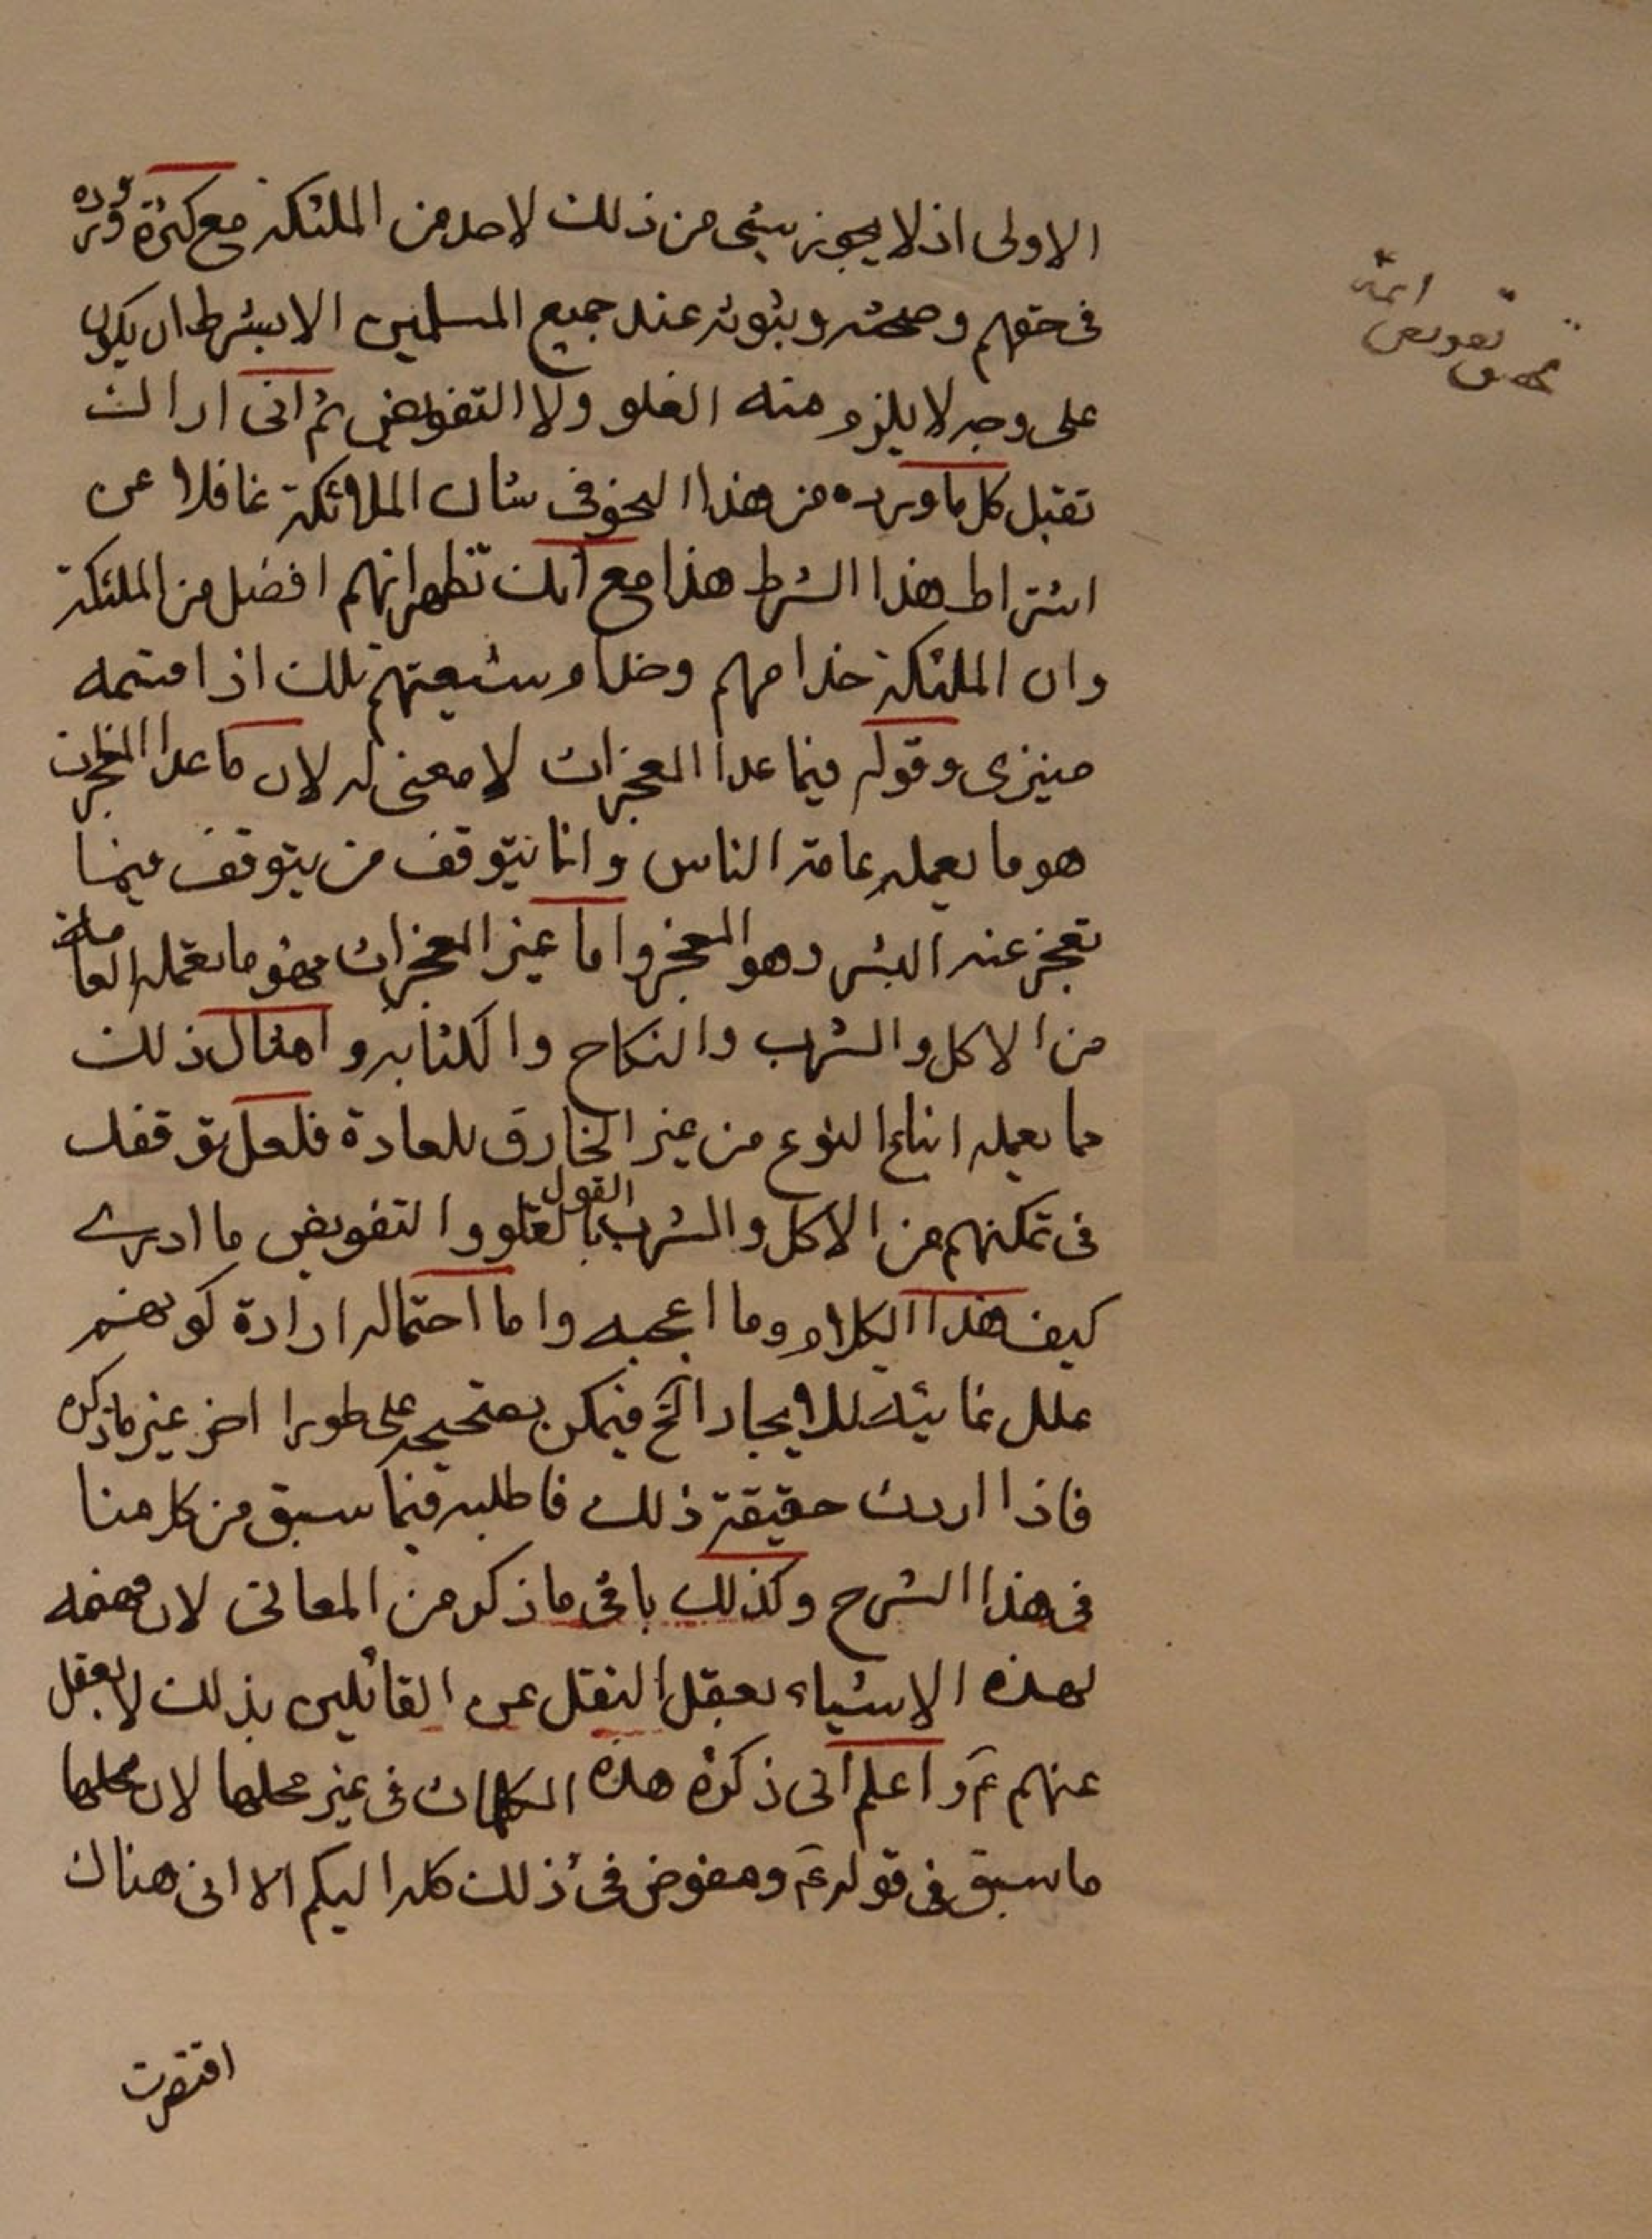 الاولى اذ لا يجوز شئ من ذلك لاحد من الملئكة مع كثرة وروده
فى حقهم وصحته وثبوته عند جميع المسلمين الا بشرط ان يكون
على وجه لا يلزم منه الغلو ولا التفويض ثم انى اراك
تقبل كل ما ورد من هذا النحو فى شان الملائكة غافلا عن
اشتراط هذا الشرط هذا مع انك تظهر انهم افضل من الملئكة
وان الملئكة خدامهم وخدام شيعتهم تلك اذا قسمة
ضيزى وقوله فيما عدا المعجزات لا معنى له لان ما عدا المعجزات
هو ما يعمله عامة الناس وانما يتوقف من يتوقف فيما
تعجز عنه البشر وهو المعجز واما غير المعجزات فهو ما يعمله العامة
من الاكل والشرب والنكاح والكتابة وامثال ذلك
مما يعمله ابناء النوع من غير الخارق للعادة فلعل توقفك
فى تمكنهم من الاكل والشرب القول بالغلو والتفويض ما ادرى
كيف هذا الكلام وما اعجبه واما احتماله ارادة كونهم
علل غائية للايجاد الخ فيمكن تصحيحه على طور اخر غير ما ذكره
فاذا اردت حقيقة ذلك فاطلبه فيما سبق من كلامنا
فى هذا الشرح وكذلك باقى ما ذكر من المعانى لان فهمه
لهذه الاشياء بعقل النقل عن القائلين بذلك لا بعقل
عنهم ع واعلم انى ذكرت هذه الكلمات فى غير محلها لان محلها
ما سبق فى قوله ع ومفوض فى ذلك كله اليكم الا انى هناك
اقتصرت
ائمة
تفويض